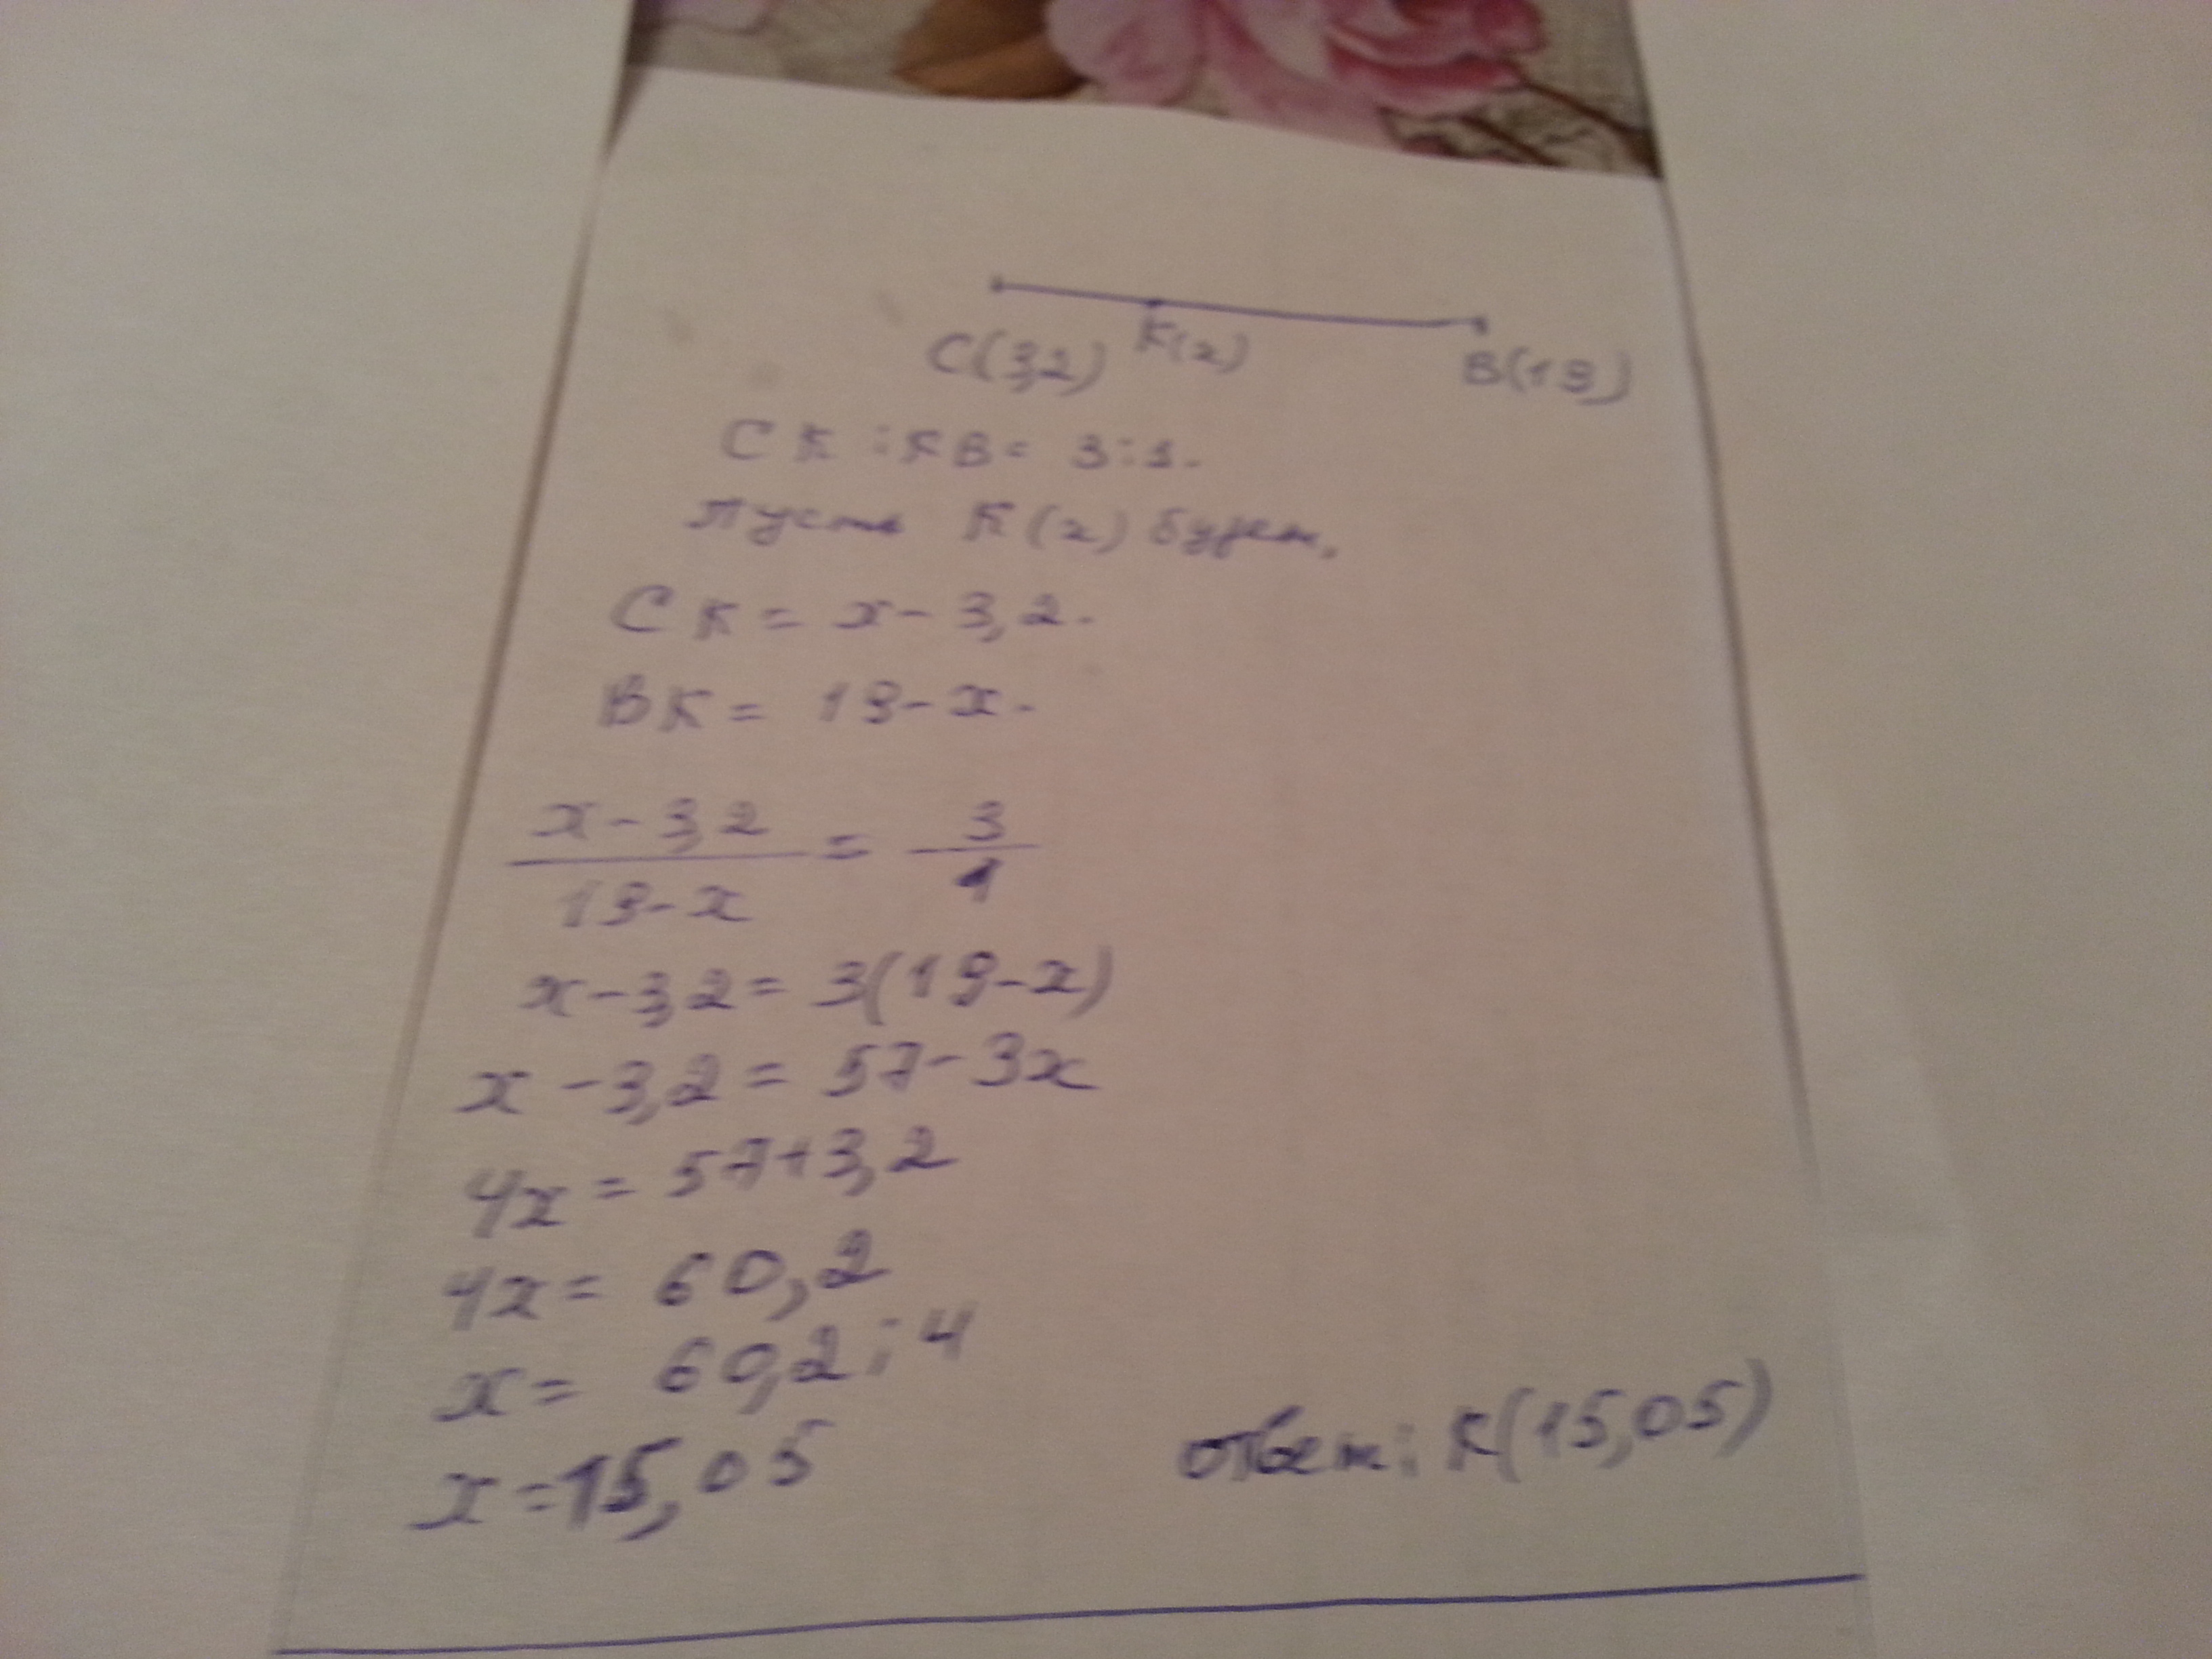 C(3,2) K(x) B(19)
CK : KB = 3:1.
Пусть K(x) будет,
CK = x - 3,2.
BK = 19 - x.
x - 3,2 / 19 - x = 3 / 1
x - 3,2 = 3(19 - x)
x - 3,2 = 57 - 3x
4x = 57 + 3,2
4x = 60,2
x = 60,2 : 4
x = 15,05
ответ: K(15,05)